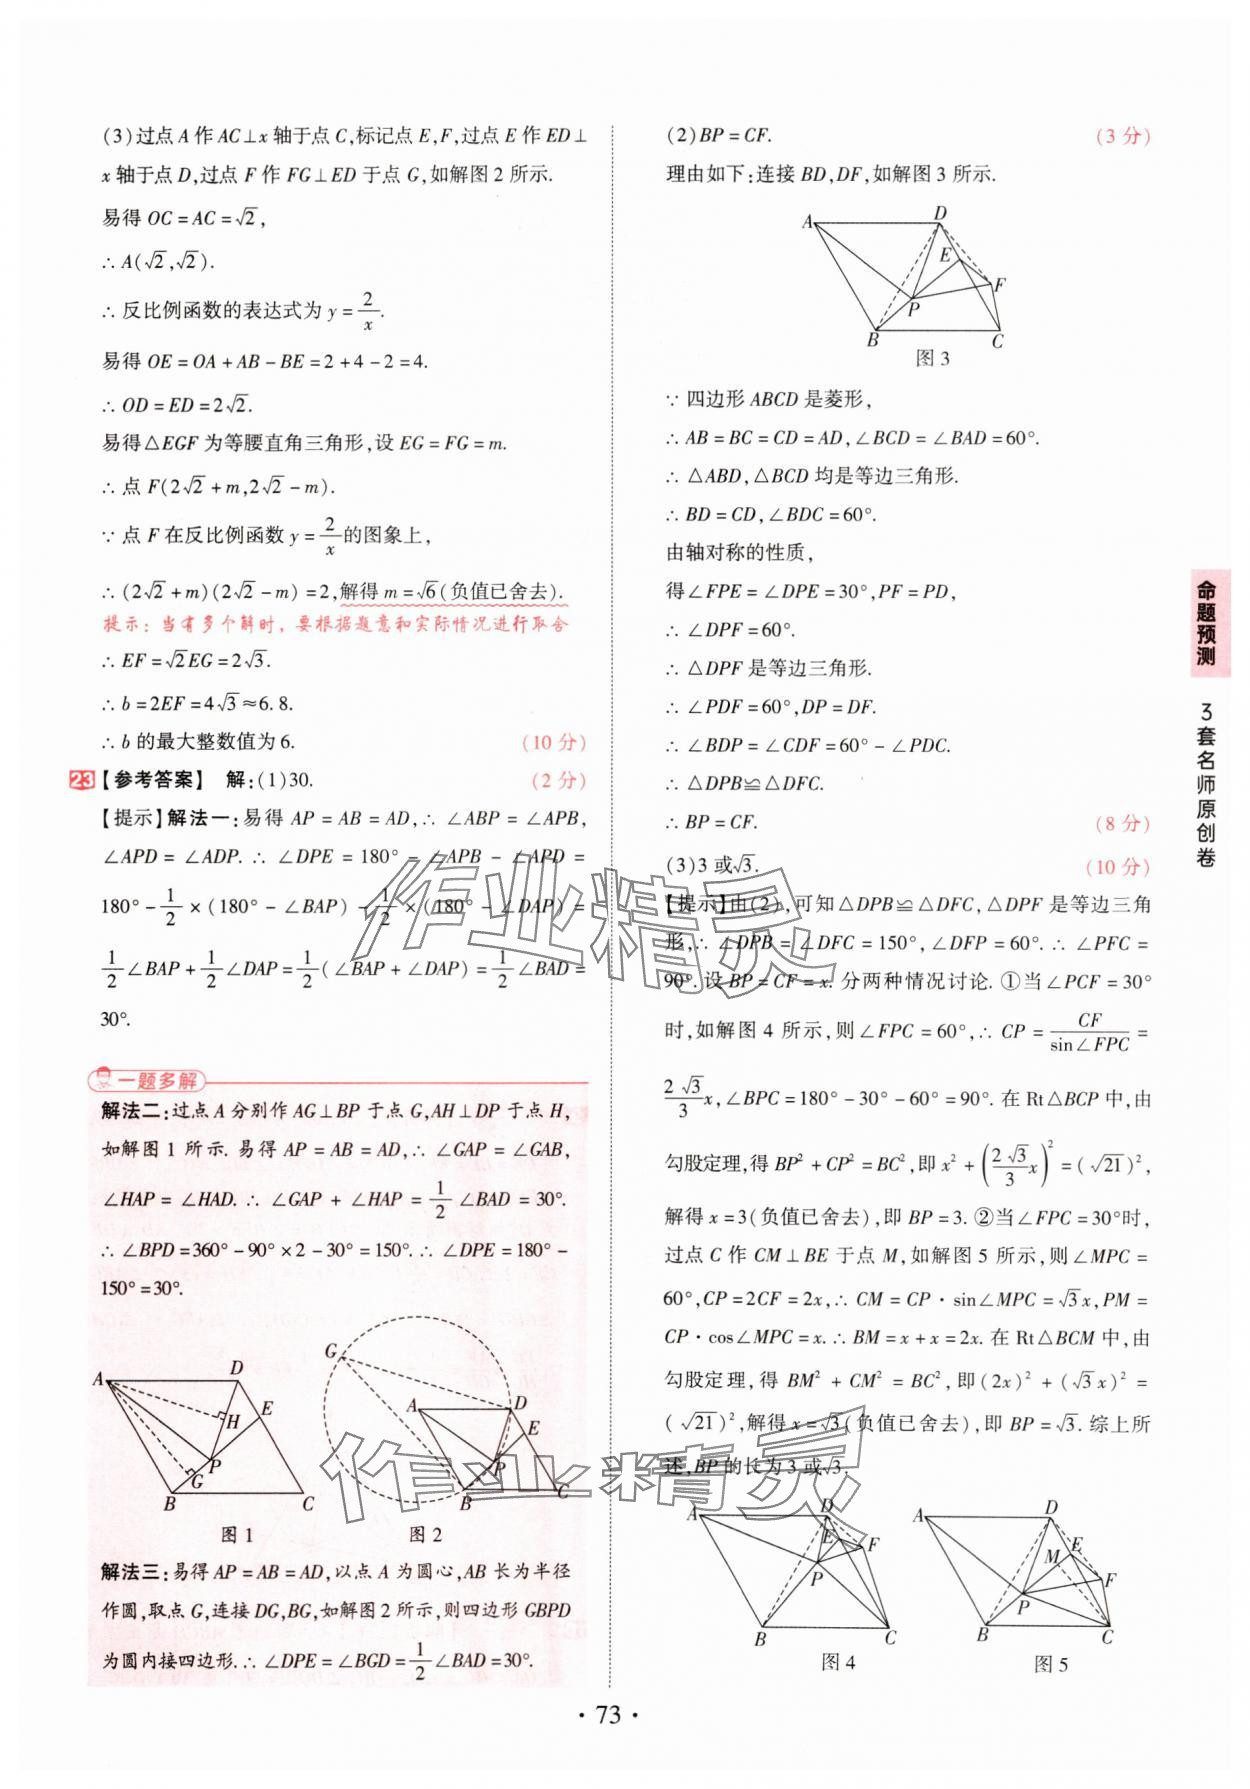 (3)过点A作AC⊥x轴于点C,标记点E,F,过点E作ED⊥
x轴于点D,过点F作FG⊥ED于点G,如解图2所示.
易得OC=AC=√2,
∴A(√2,√2).
∴反比例函数的表达式为y=2/x.
易得OE=OA+AB-BE=2+4-2=4.
∴OD=ED=2√2.
易得△EGF为等腰直角三角形,设EG=FG=m.
∴点F(2√2+m,2√2-m).
∵点F在反比例函数y=2/x的图象上,
∴(2√2+m)(2√2-m)=2,解得m=√6(负值已舍去).
提示:当有多个解时,要根据题意和实际情况进行取舍
∴EF=√2EG=2√3.
∴b=2EF=4√3≈6.8.
∴b的最大整数值为6. (10分)
23【参考答案】 解:(1)30. (2分)
【提示】解法一:易得AP=AB=AD,∴∠ABP=∠APB,
∠APD=∠ADP.∴∠DPE=180°-∠APB-∠APD=
180°-1/2×(180°-∠BAP)-1/2×(180°-∠DAP)=
1/2∠BAP+1/2∠DAP=1/2(∠BAP+∠DAP)=1/2∠BAD=
30°.
一题多解
解法二:过点A分别作AG⊥BP于点G,AH⊥DP于点H,
如解图1所示.易得AP=AB=AD,∴∠GAP=∠GAB,
∠HAP=∠HAD.∴∠GAP+∠HAP=1/2∠BAD=30°.
∴∠BPD=360°-90°×2-30°=150°.∴∠DPE=180°-
150°=30°.
A D H E P G B C
图1
G A D E P B C
图2
解法三:易得AP=AB=AD,以点A为圆心,AB长为半径
作圆,取点G,连接DG,BG,如解图2所示,则四边形GBPD
为圆内接四边形.∴∠DPE=∠BGD=1/2∠BAD=30°.
(2)BP=CF. (3分)
理由如下:连接BD,DF,如解图3所示.
A D E F P B C
图3
∵四边形ABCD是菱形,
∴AB=BC=CD=AD,∠BCD=∠BAD=60°.
∴△ABD,△BCD均是等边三角形.
∴BD=CD,∠BDC=60°.
由轴对称的性质,
得∠FPE=∠DPE=30°,PF=PD,
∴∠DPF=60°.
∴△DPF是等边三角形.
∴∠PDF=60°,DP=DF.
∴∠BDP=∠CDF=60°-∠PDC.
∴△DPB≌△DFC.
∴BP=CF. (8分)
(3)3或√3. (10分)
【提示】由(2),可知△DPB≌△DFC,△DPF是等边三角
形,∴∠DPB=∠DFC=150°,∠DFP=60°.∴∠PFC=
90°.设BP=CF=x.分两种情况讨论.①当∠PCF=30°
时,如解图4所示,则∠FPC=60°,∴CP=CF/sin∠FPC=
2√3/3x,∠BPC=180°-30°-60°=90°.在Rt△BCP中,由
勾股定理,得BP²+CP²=BC²,即x²+(2√3/3x)²=(√21)²,
解得x=3(负值已舍去),即BP=3.②当∠FPC=30°时,
过点C作CM⊥BE于点M,如解图5所示,则∠MPC=
60°,CP=2CF=2x,∴CM=CP·sin∠MPC=√3x,PM=
CP·cos∠MPC=x.∴BM=x+x=2x.在Rt△BCM中,由
勾股定理,得BM²+CM²=BC²,即(2x)²+(√3x)²=
(√21)²,解得x=√3(负值已舍去),即BP=√3.综上所
述,BP的长为3或√3.
A D E F P B C
图4
A D M E F P B C
图5
命题预测
3套名师原创卷
作业精灵
作业精灵
·73·